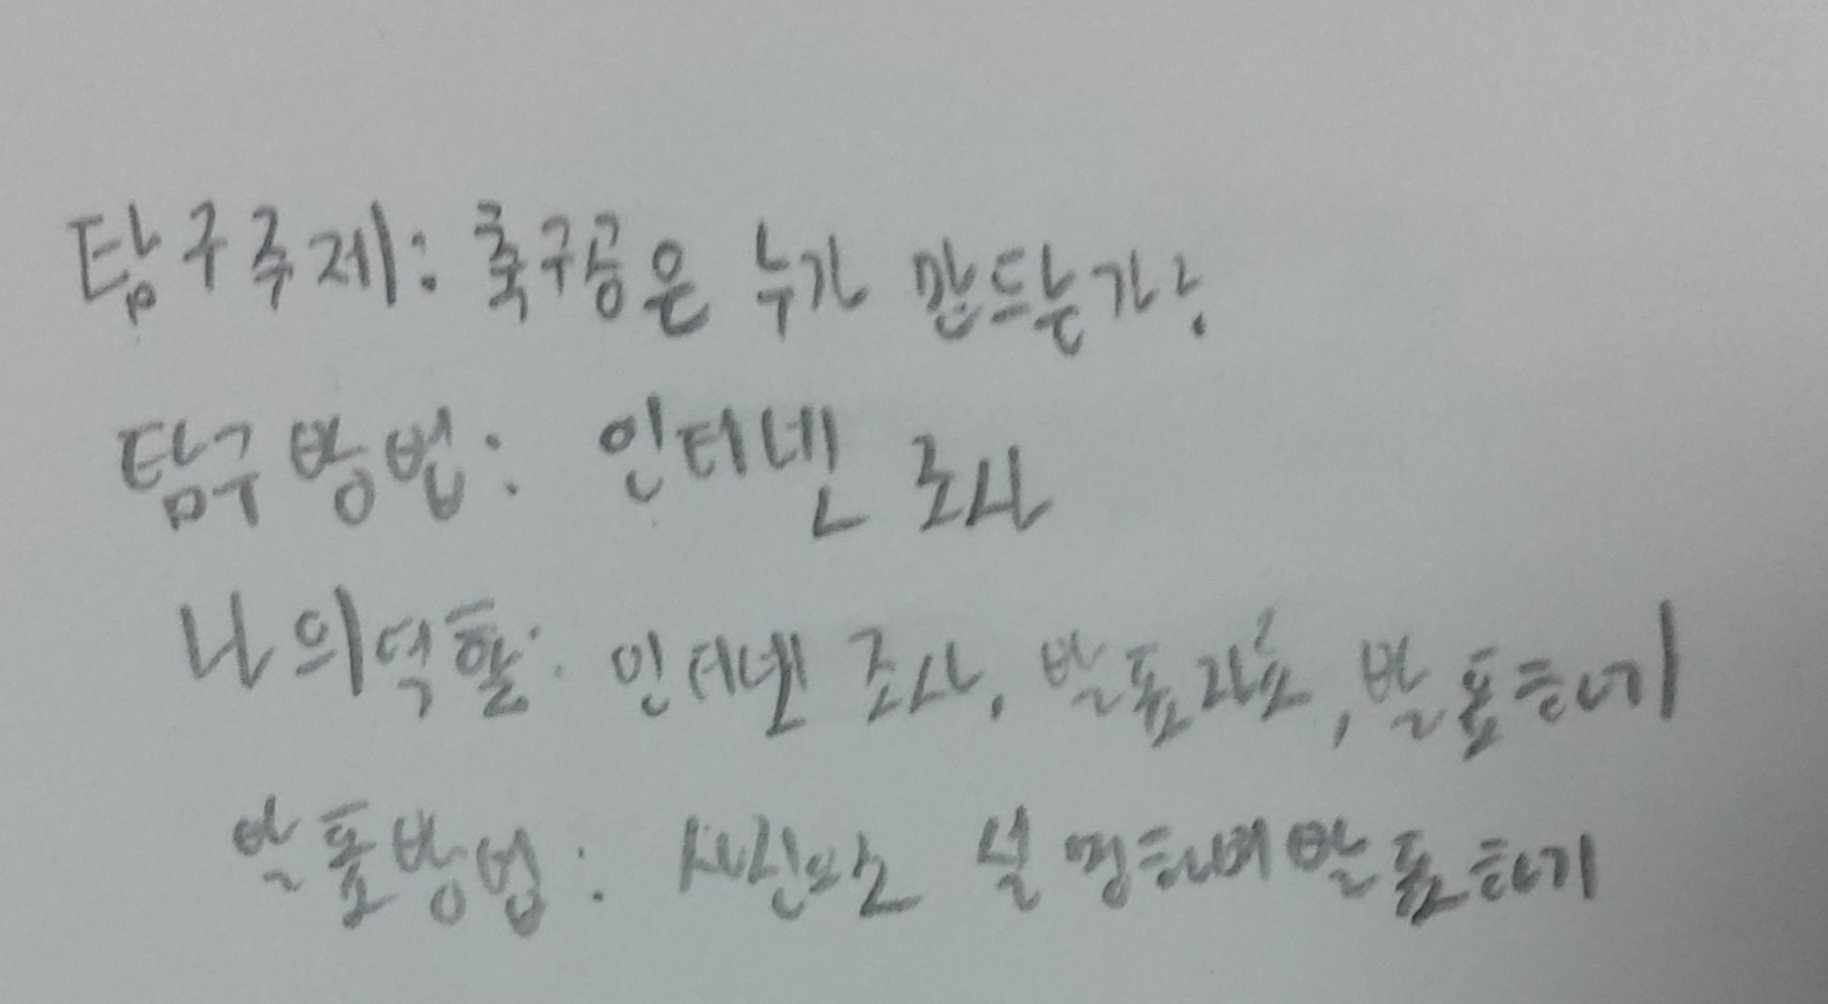 탐구주제: 축구공은 누가 만드는가.
탐구방법: 인터넨 조사
나의역할: 인터넨 조사, 발표자료, 발표하기
발표방법: 사진으로 설명하며 발표하기